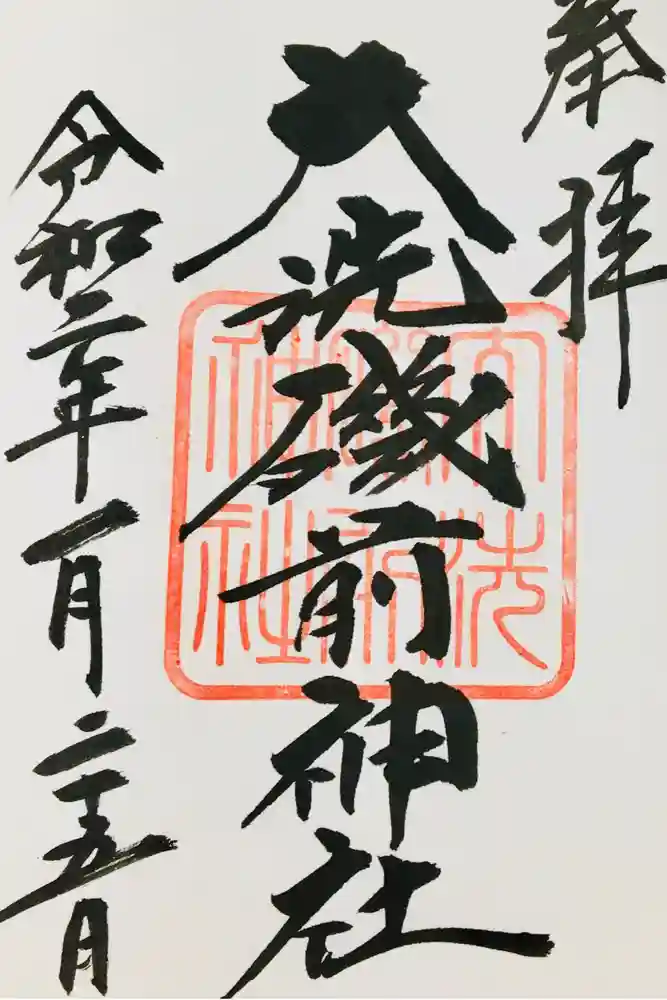 奉拝
大洗磯前神社
令和二年一月二十五日
大洗
磯前
神社